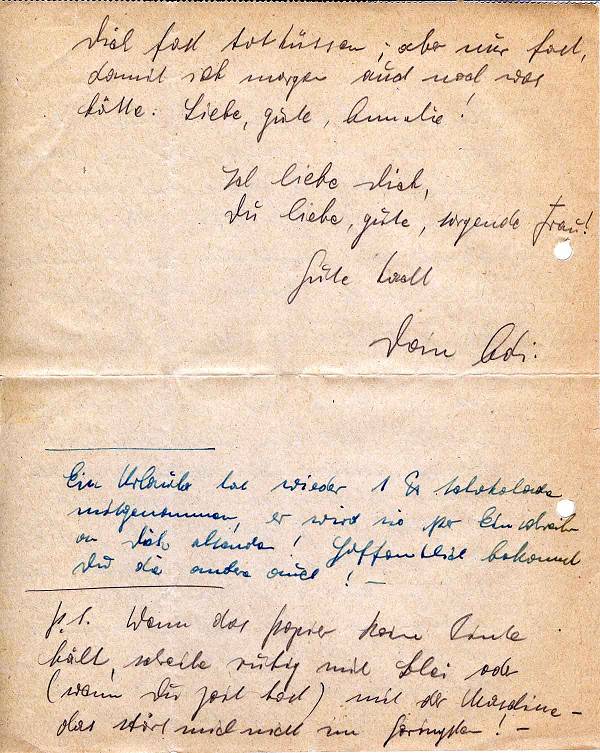 Dich fast totküssen; aber nur fast,
damit ich morgen auch noch was
hätte. Liebe, gute, Annelie!
Ich liebe Dich,
Du liebe, gute, sorgende Frau!
Gute Nacht
Dein Adi.
Ein Urlauber hat wieder 1 Schokolade
mitgenommen, er wird sie per Einschreib
an Dich absenden! Hoffentlich bekommst
Du die andere auch! –
P.S. Wenn das Papier keine Tinte
hält, schreibe ruhig mit Blei oder
(wenn Du Zeit hast) mit der Maschine –
das stört mich nicht im Geringsten! –